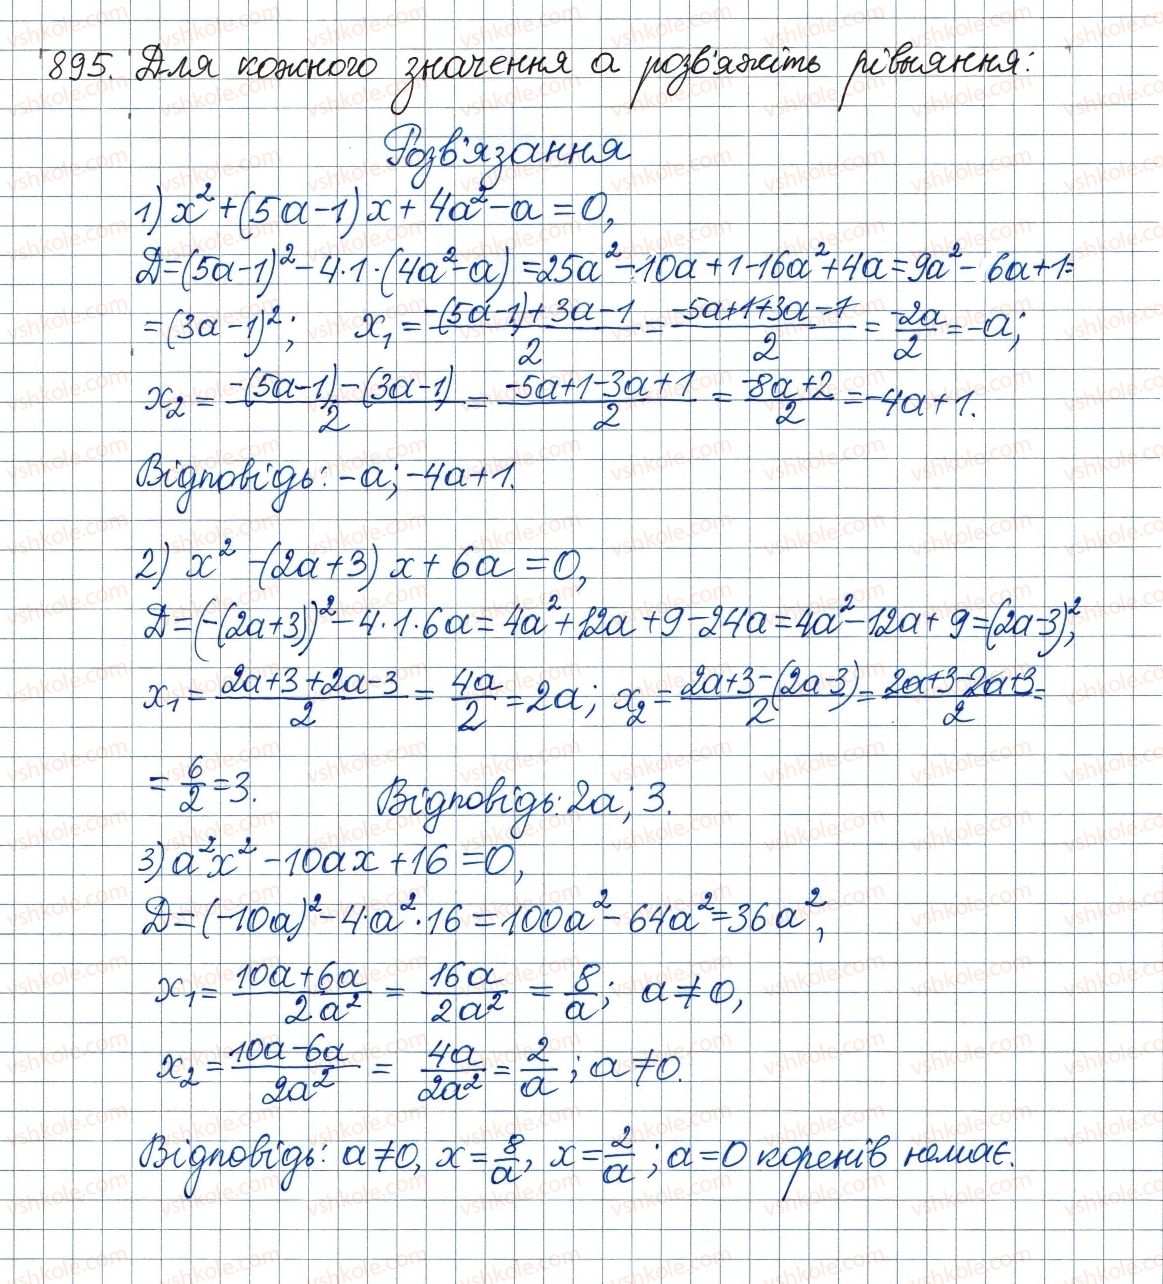 895. Для кожного значення a розв'яжіть рівняння:
Розв'язання
1) x² + (5a − 1) x + 4a² − a = 0,
D = (5a − 1)² − 4 · 1 · (4a² − a) = 25a² − 10a + 1 − 16a² + 4a = 9a² − 6a + 1 =
= (3a − 1)²; x₁ = (−(5a − 1) + 3a − 1)/2 = (−5a + 1 + 3a − 1)/2 = −2a/2 = −a;
x₂ = (−(5a − 1) − (3a − 1))/2 = (−5a + 1 − 3a + 1)/2 = (−8a + 2)/2 = −4a + 1.
Відповідь: −a; −4a + 1.
2) x² − (2a + 3) x + 6a = 0,
D = (−(2a + 3))² − 4 · 1 · 6a = 4a² + 12a + 9 − 24a = 4a² − 12a + 9 = (2a − 3)²,
x₁ = (2a + 3 + 2a − 3)/2 = 4a/2 = 2a; x₂ = (2a + 3 − (2a − 3))/2 = (2a + 3 − 2a + 3)/2 =
= 6/2 = 3. Відповідь: 2a; 3.
3) a²x² − 10ax + 16 = 0,
D = (−10a)² − 4 · a² · 16 = 100a² − 64a² = 36a²,
x₁ = (10a + 6a)/(2a²) = 16a/(2a²) = 8/a; a ≠ 0,
x₂ = (10a − 6a)/(2a²) = 4a/(2a²) = 2/a; a ≠ 0.
Відповідь: a ≠ 0, x = 8/a, x = 2/a; a = 0 коренів немає.
vshkole.com